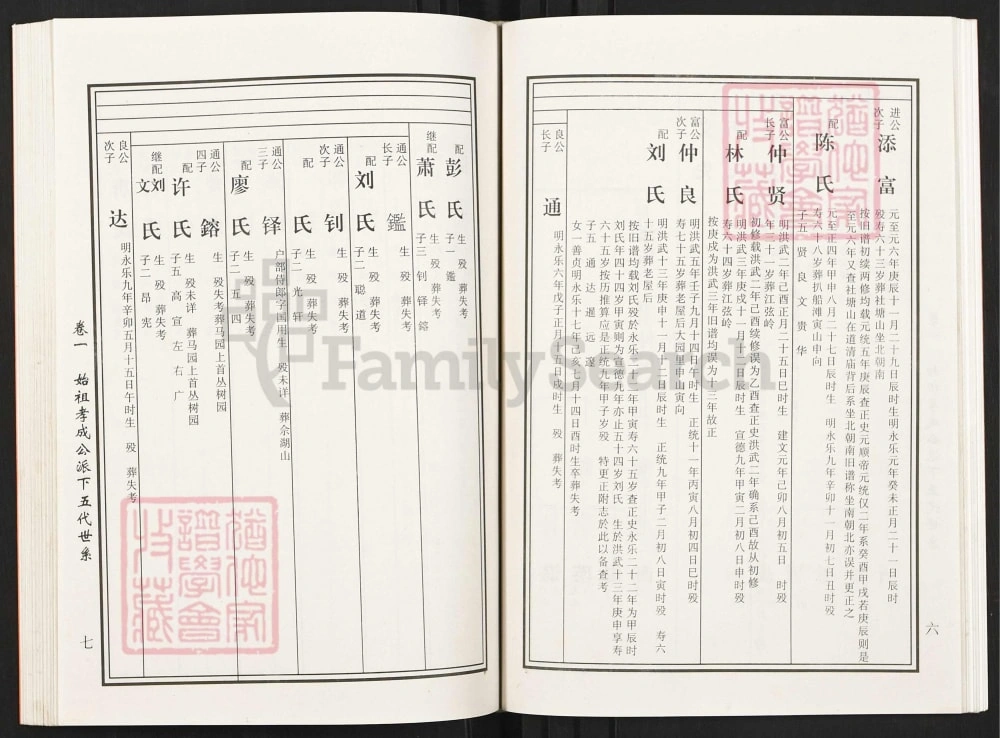 进公
次子
添富
元至元六年庚辰十一月二十九日辰时生明永乐元年癸未正月二十一日辰时
殁寿六十三岁葬社塘山坐北朝南
按旧谱初续两修均载元统五年庚辰查正史元顺帝元统仅二年系癸酉甲戌若庚辰则是
至元六年又查社塘山在道清庙背后系坐北朝南旧谱称坐南朝北亦误并更正之
配
陈氏
元至正四年甲申八月二十七日辰时生 明永乐九年辛卯十一月初七日丑时殁
寿六十八岁葬扒船滩寅山申向
子五 贤 良 文 贵 华
富公
长子
仲贤
明洪武二年己酉正月二十五日巳时生 建文元年己卯八月初五日 时殁
年三十一岁葬江弦岭
初修载洪武二年己酉续修误为乙酉查正史洪武二年确系己酉故从初修
配
林氏
明洪武三年庚戌十一月十二日辰时生 宣德九年甲寅二月初八日申时殁
寿六十四岁葬江弦岭
按庚戌为洪武三年旧谱均误为十三年故正
富公
次子
仲良
明洪武五年壬子九月十四日午时生 正统十一年丙寅八月初四日巳时殁
寿七十五岁葬老屋后大园里申山寅向
配
刘氏
明洪武十三年庚申十一月十二日辰时生 正统九年甲子二月初八日寅时殁 寿六
十五岁葬老屋后
按旧谱均载刘氏殁於永乐二十三年甲寅寿六十五岁查正史永乐二十二年为甲辰时
刘氏年四十四岁甲寅则为宣德九年亦止五十四岁刘氏 生於洪武十三年庚申享寿
六十五岁按历推算应是正统九年甲子岁殁 特更正附志於此以备查考
子五 通 达 暹 远 邃
女一善贞明永乐十七年己亥七月十四日酉时生卒葬失考
良公
长子
通
明永乐六年戊子正月十五日戌时生 殁 葬失考
配
彭氏
生 殁 葬失考
子一 鑑
继配
萧氏
生 殁 葬失考
子三 钊 铎 鎔
通公
长子
鑑
生 殁 葬失考
配
刘氏
生 殁 葬失考
子二 聪 道
通公
次子
钊
生 殁 葬失考
配
氏
生 殁 葬失考
子二 光 轩
通公
三子
铎
户部侍郎字国用生 殁未详 葬佘湖山
配
廖氏
生 殁 葬失考
子二 五 四
通公
四子
鎔
生 殁失考葬马园上首丛树园
配
许氏
生 殁未详 葬马园上首丛树园
子五 高 宣 左 右 广
继配
刘文氏氏
生 殁 葬失考
子二 昂 宪
良公
次子
达
明永乐九年辛卯五月十五日午时生 殁 葬失考
卷一 始祖孝成公派下五代世系
七
六
FamilySearch